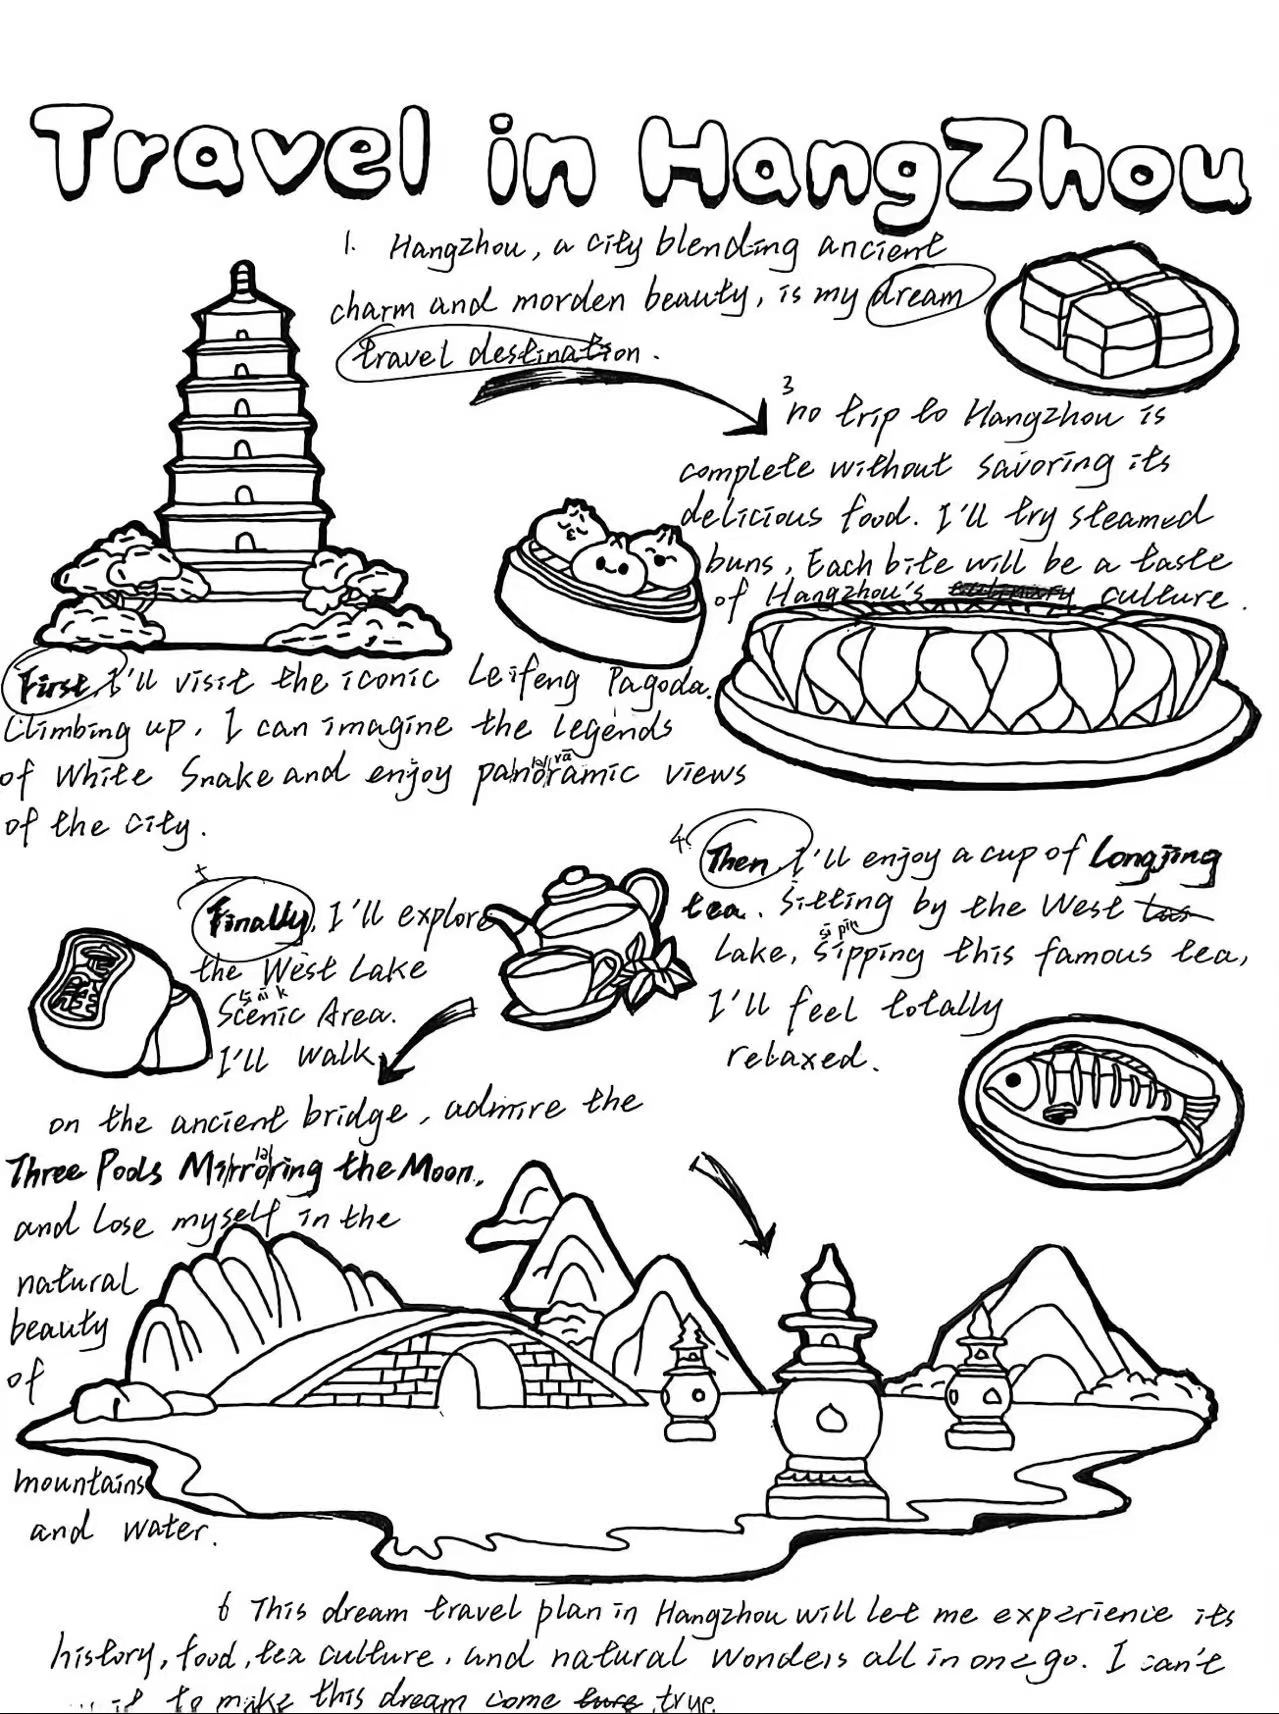 Travel in HangZhou
1. Hangzhou, a city blending ancient
charm and morden beauty, is my dream
travel destination.
First, I'll visit the iconic Leifeng Pagoda.
Climbing up, I can imagine the legends
of White Snake and enjoy panoramic views
of the city.
3
no trip to Hangzhou is
complete without savoring its
delicious food. I'll try steamed
buns, Each bite will be a taste
of Hangzhou's culture.
4. Then, I'll enjoy a cup of Longjing
tea. Sitting by the West
si pin
Lake, sipping this famous tea,
I'll feel totally
relaxed.
Finally, I'll explore
the West Lake
si ni k
Scenic Area.
I'll walk
on the ancient bridge, admire the
Three Pools Mirroring the Moon,
and lose myself in the
natural
beauty
of
mountains
and water.
6 This dream travel plan in Hangzhou will let me experience its
history, food, tea culture, and natural wonders all in one go. I can't
to make this dream come true.